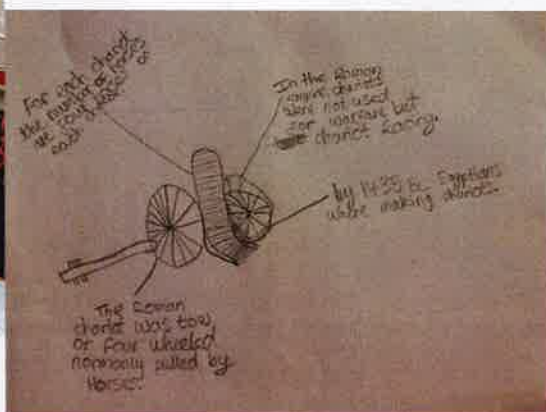 For each chariot
the number of horses
are four
each
In the Roman
empire chariots
were not used
for warfare but
chariot Racing.
by 1435 BC Egyptians
where making chariots.
The Roman
chariot was tow
or four wheeled
normally pulled by
Horses.